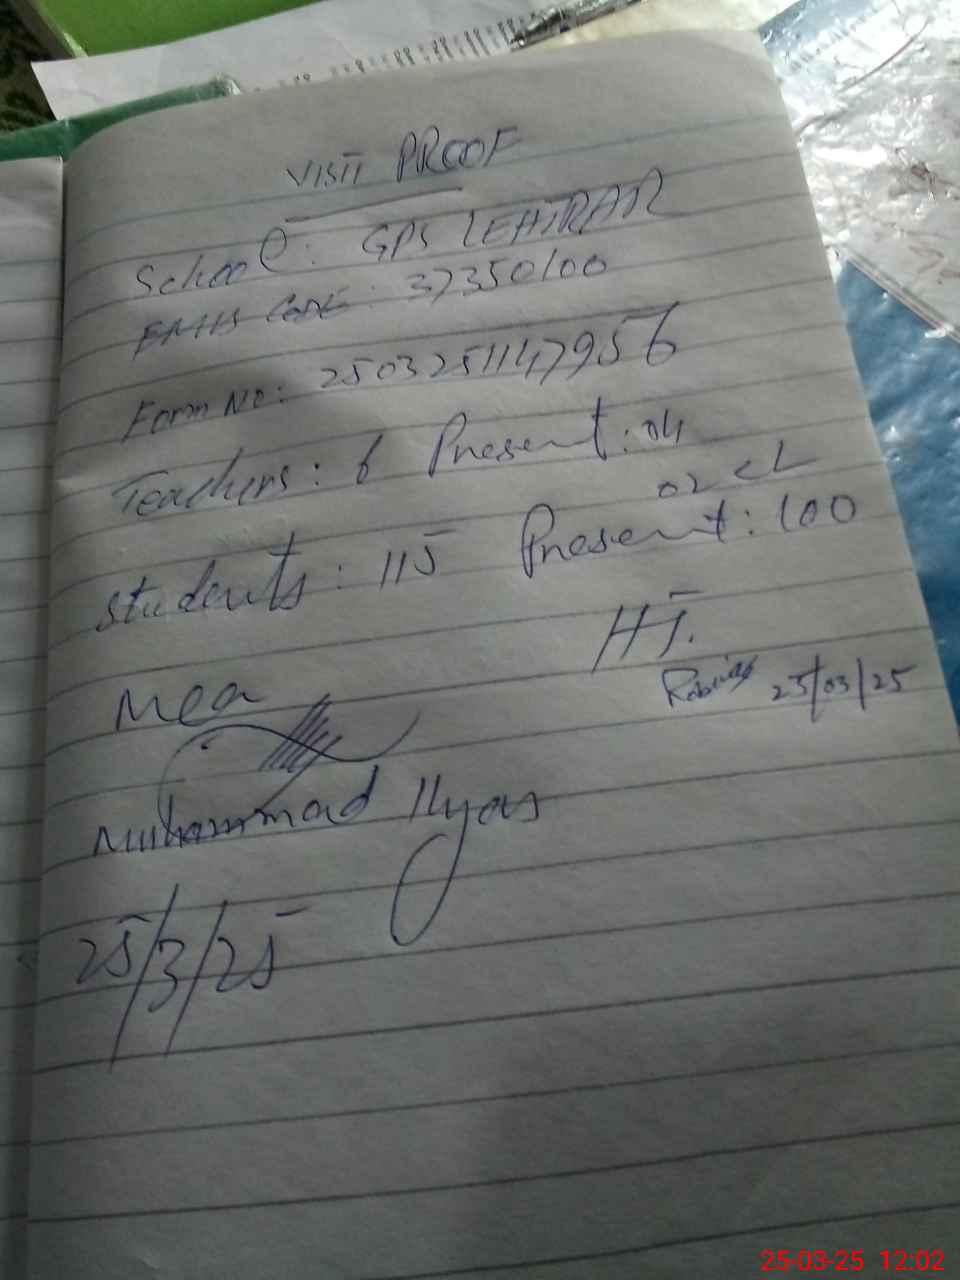 VISIT PROOF
School: GPS LEHTRAR
EMIS CODE: 37350100
Form No: 2503251147956
Teachers: 6 Present: 04
02 CL
Students: 115 Present: 100
HT.
23/03/25
Mea
Muhammad Ilyas
25/3/25
25-03-25 12:02